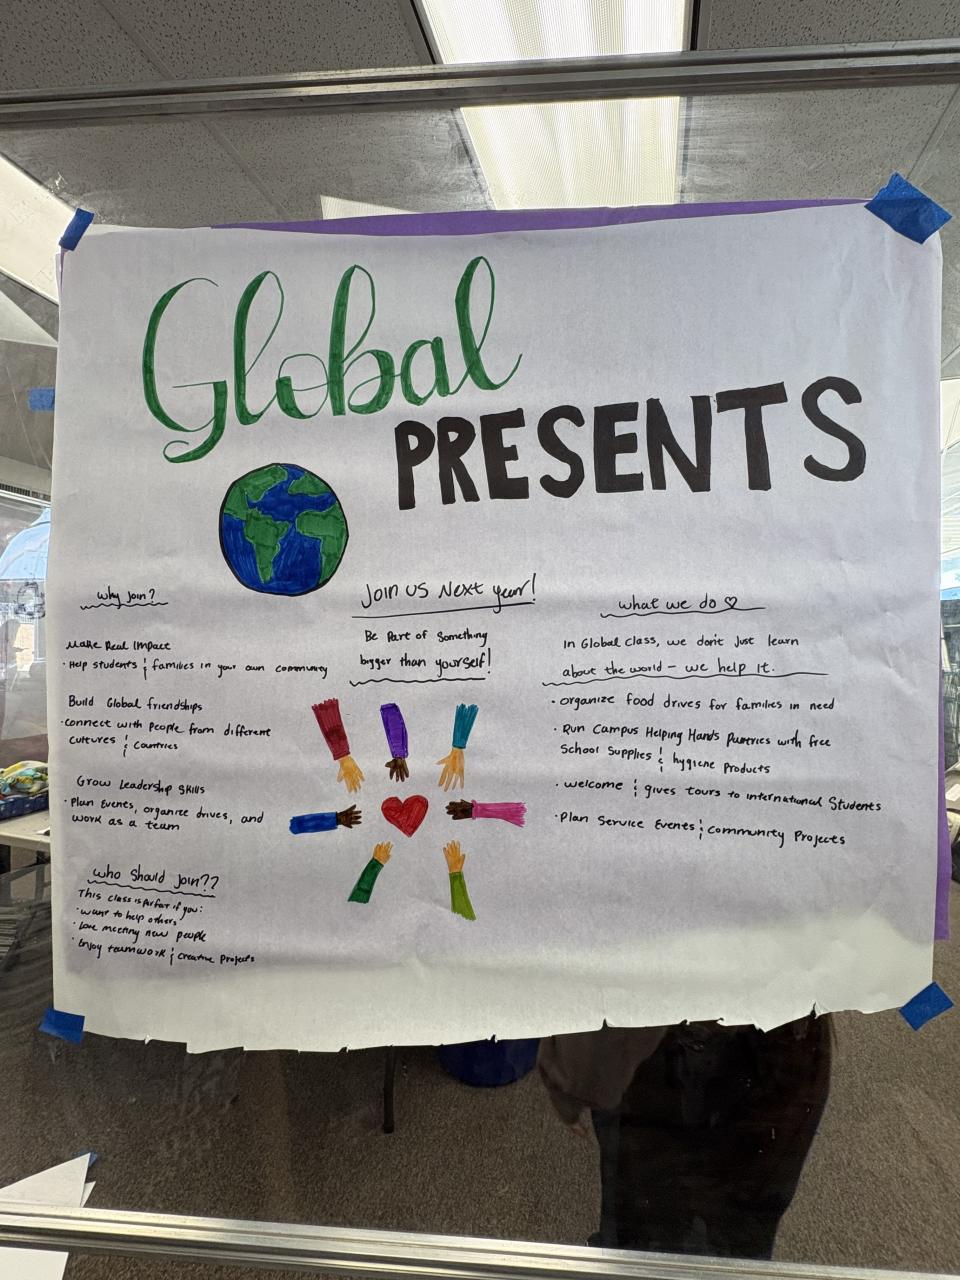 Global
PRESENTS
Join us Next year!
Be Part of Something
bigger than yourself!
why join?
Make Real Impact
· Help students & families in your own community
Build Global friendships
· connect with people from different
cultures & countries
Grow Leadership skills
· Plan Events, organize drives, and
work as a team
who should join??
This class is for if you:
· want to help others
· love meeting new people
· Enjoy teamwork & creative projects
what we do ♡
In Global class, we don't just learn
about the world - we help it.
· organize food drives for families in need
· Run Campus Helping Hands Pantries with free
School Supplies & hygiene Products
· welcome & gives tours to international Students
· Plan Service Events & community Projects